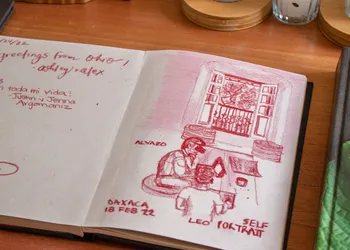 greetings from Ohio!
en toda mi vida:
Juan + Jenna
Argomaniz
ALVARO
OAXACA
18 FEB 22
LEO
SELF
PORTRAIT